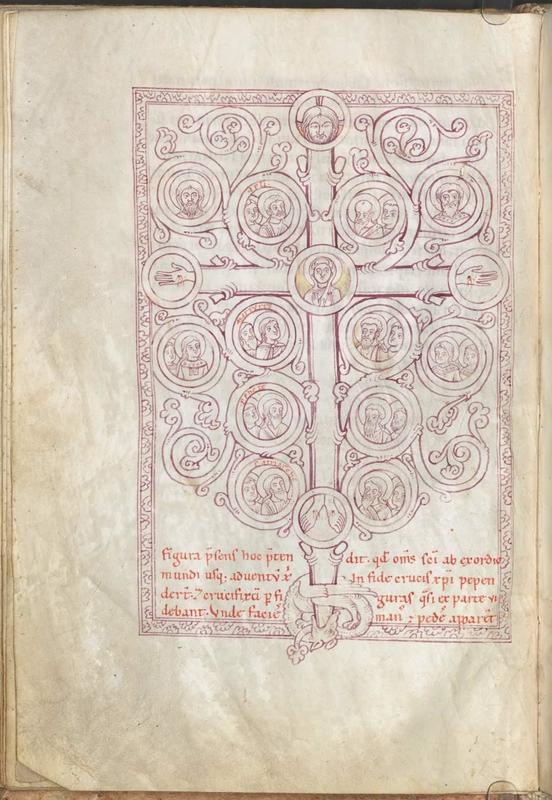 figura p̄sens hoc p̄ten dit. qđ om̄s sc̄i ab exordio
mundi usq; adventū x̄ In fide crucis xp̄i pepen
der̄t. ⁊ crucifixū p̄ fi guras q̄si ex parte vi
debant. Vnde facies man⁹ ⁊ pedes apparēt